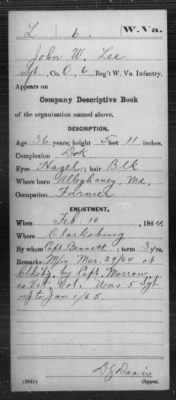 L 6 W. Va.
John W. Lee
Sgt., Co. O, 6 Reg't W. Va. Infantry.
Appears on
Company Descriptive Book
of the organization named above.
DESCRIPTION.
Age 36 years; height 5 feet 11 inches.
Complexion Dark
Eyes Hazel; hair Blk
Where born Alleghaney, Md.
Occupation Farmer
ENLISTMENT.
When Feb. 10, 1864
Where Clarksburg
By whom Capt. Bennett; term 3 y'rs.
Remarks: M/in Mar. 29/64 at
Clbsbg. by Capt. Morrow,
as Vet. Vol. Was 5 Sgt
up to Jan 1/65.
Copyist.